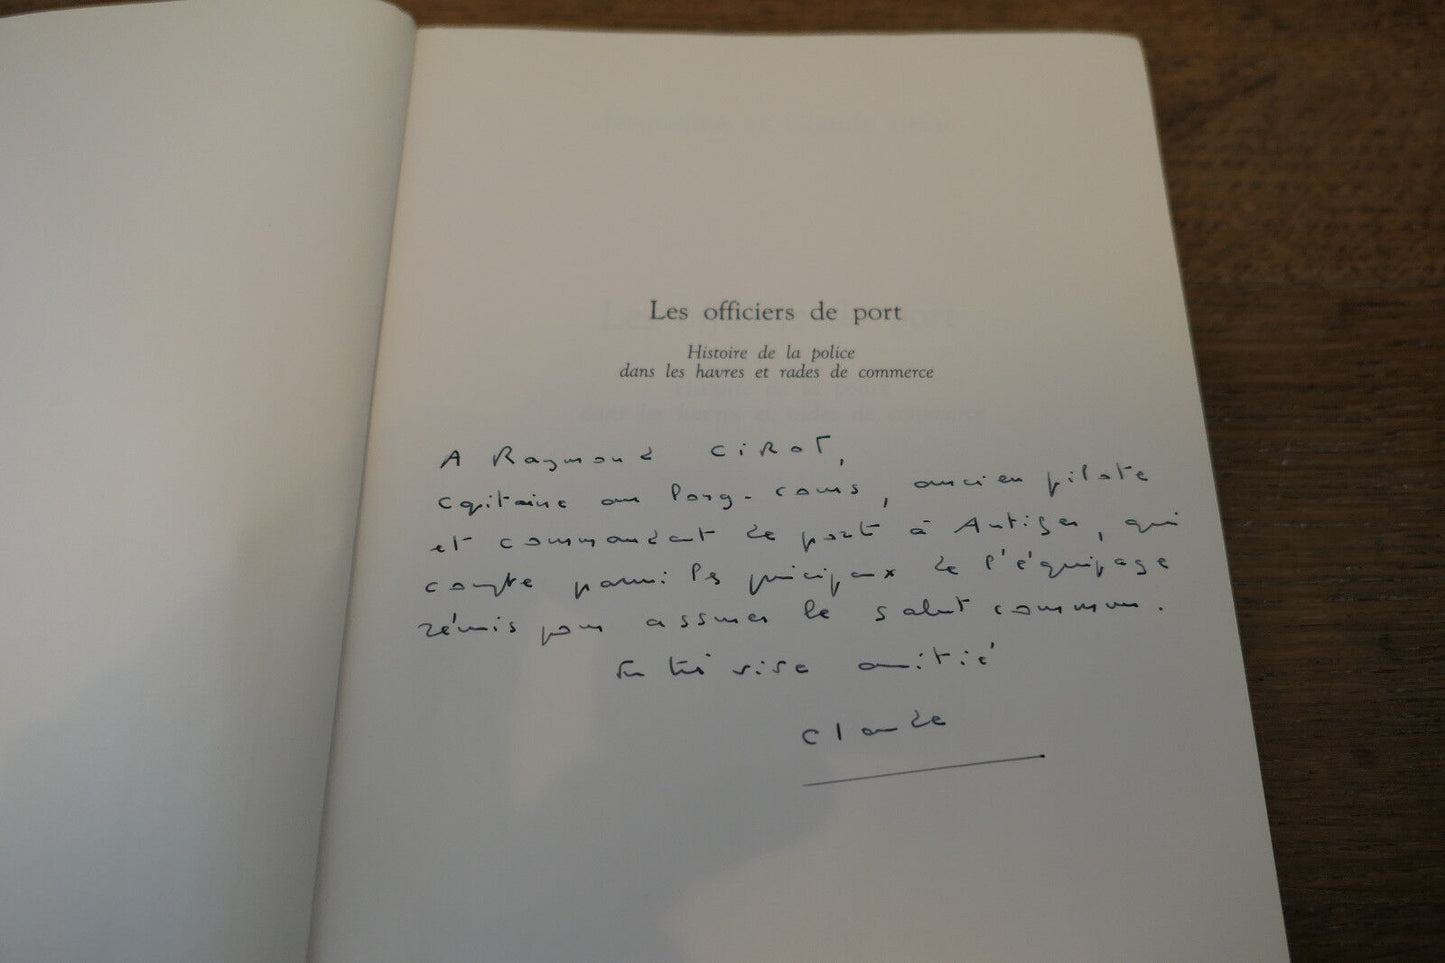 Les officiers de port
Histoire de la police
dans les havres et rades de commerce
A Raymond CIROT,
capitaine au long-cours, ancien pilote
et commandant de port à Antifer, qui
compte parmi les principaux de l'équipage
réunis pour assurer le salut commun.
En très vive amitié
Claude